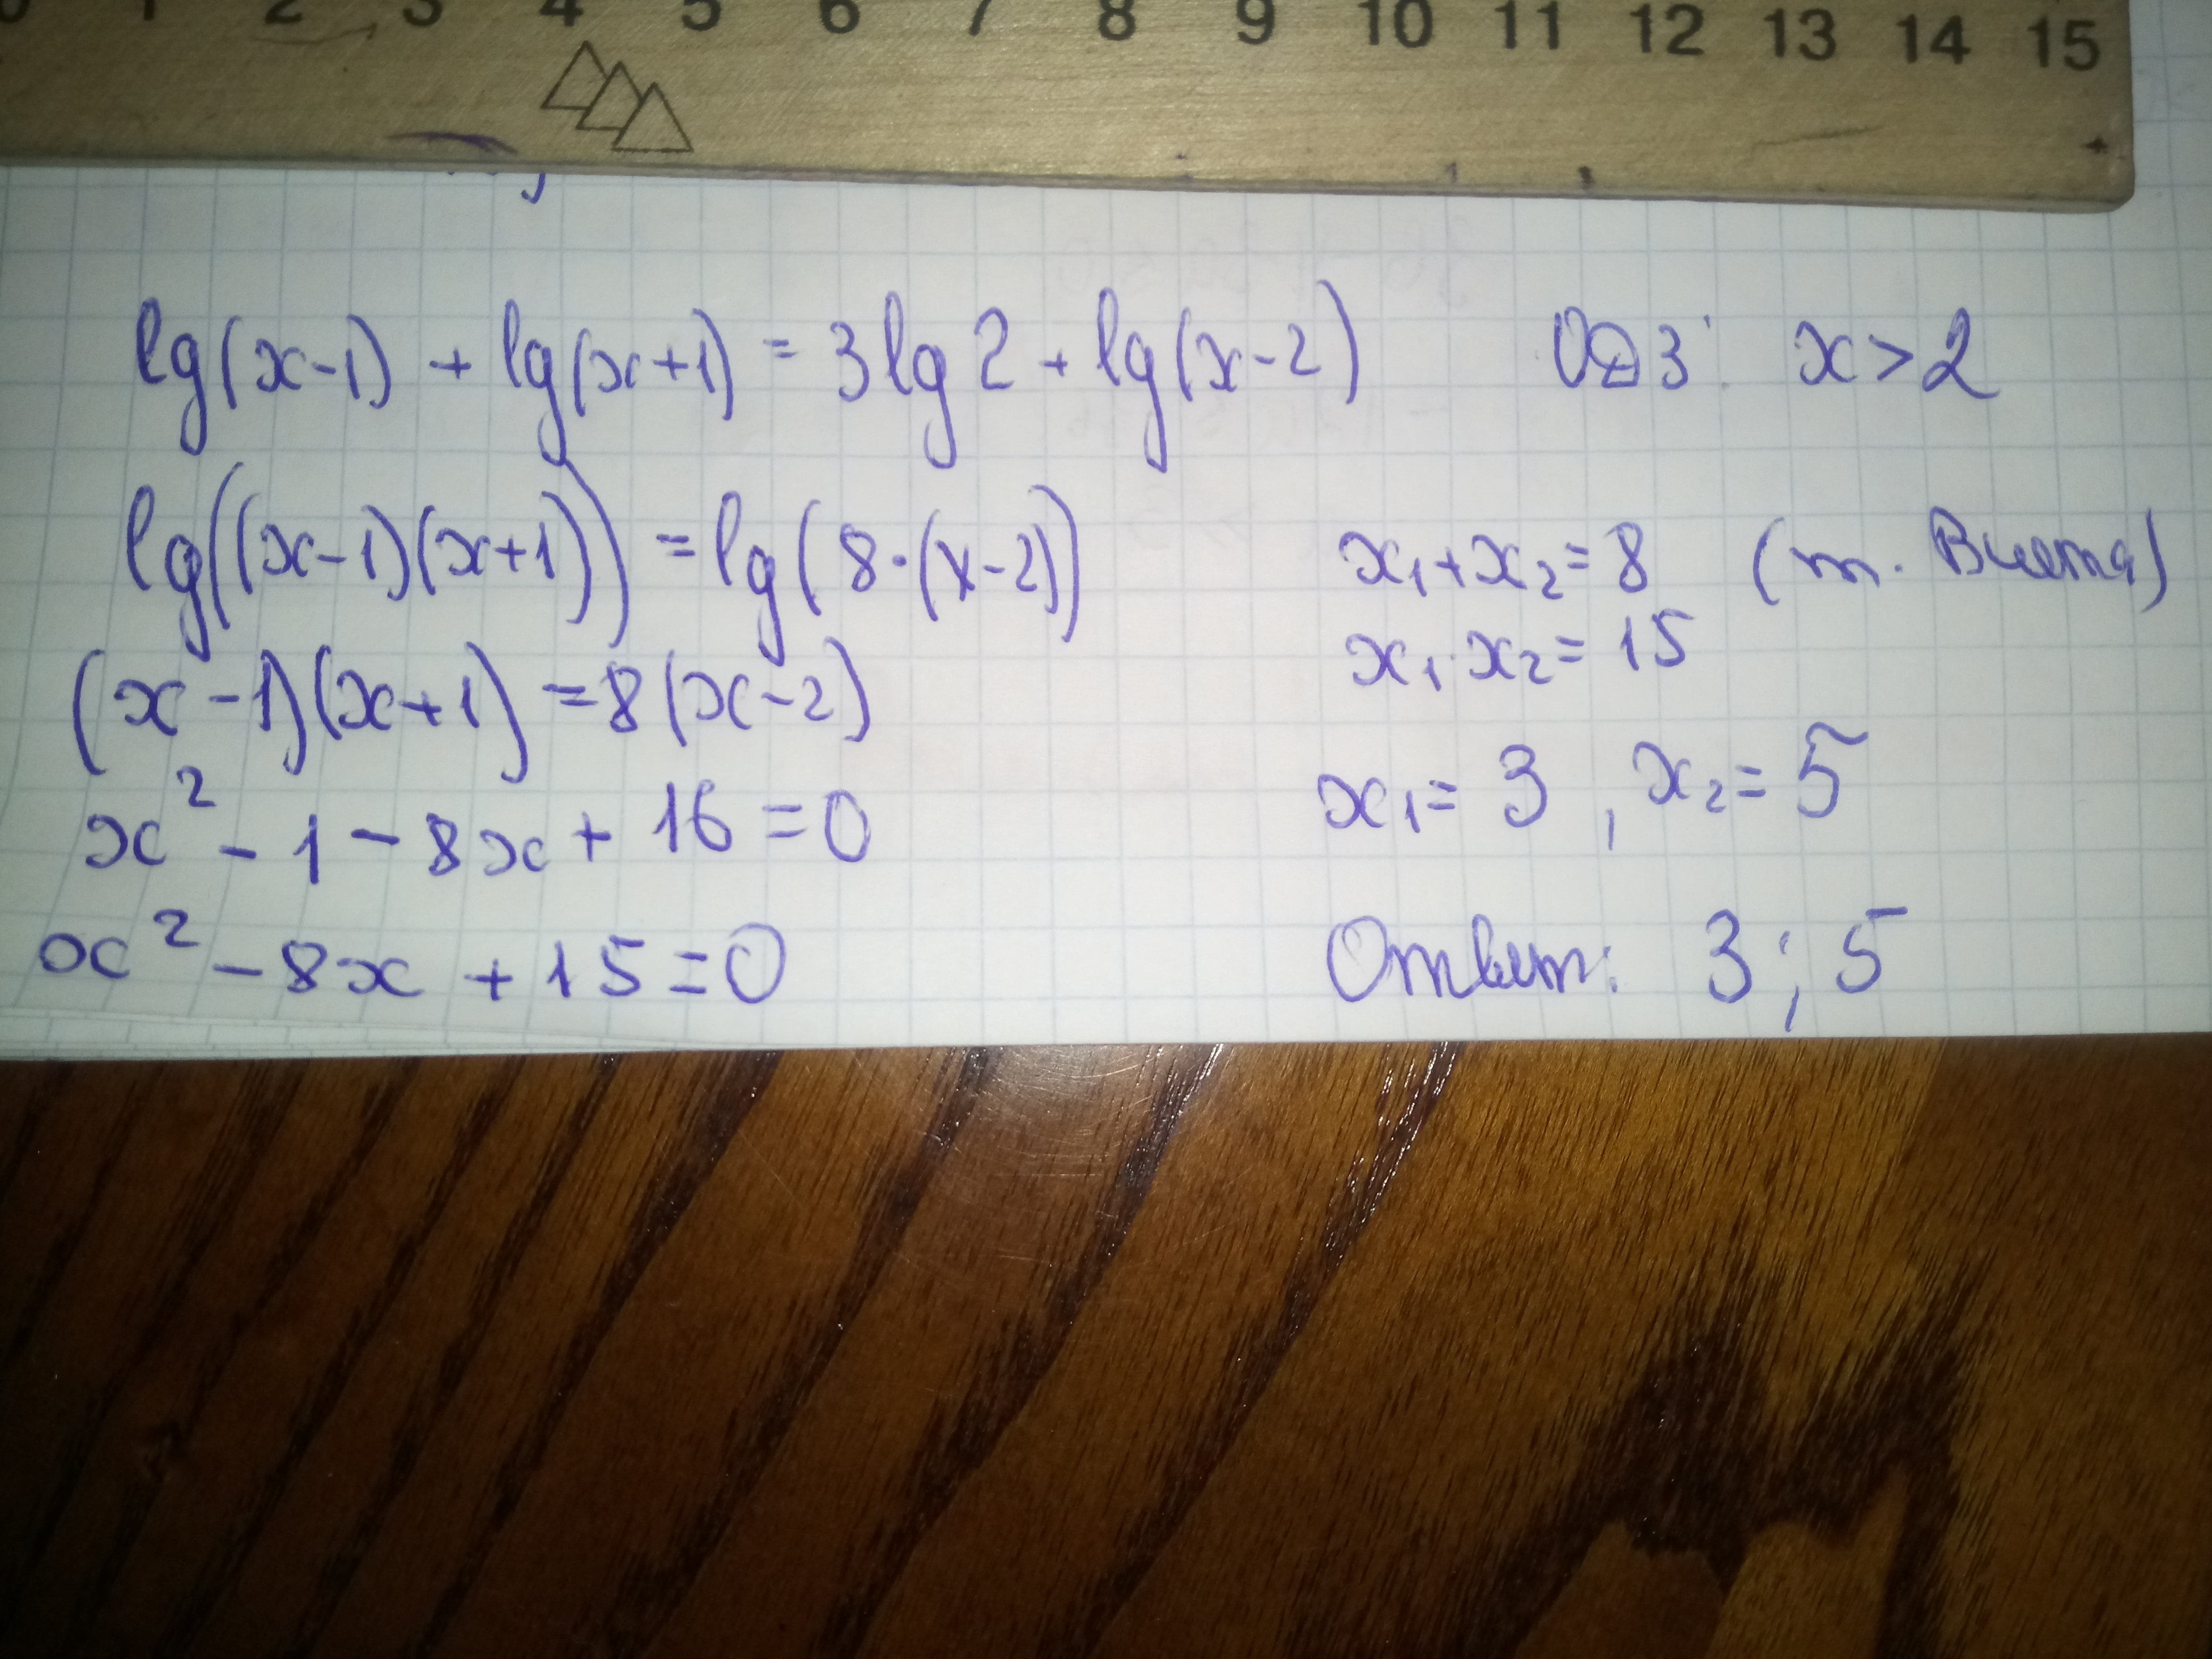 0 1 2 3 4 5 6 7 8 9 10 11 12 13 14 15
lg(x-1) + lg(x+1) = 3lg2 + lg(x-2)
ОДЗ: x>2
lg((x-1)(x+1)) = lg(8·(x-2))
(x-1)(x+1) = 8(x-2)
x² - 1 - 8x + 16 = 0
x² - 8x + 15 = 0
x₁+x₂=8 (т. Виета)
x₁·x₂=15
x₁=3, x₂=5
Ответ: 3; 5